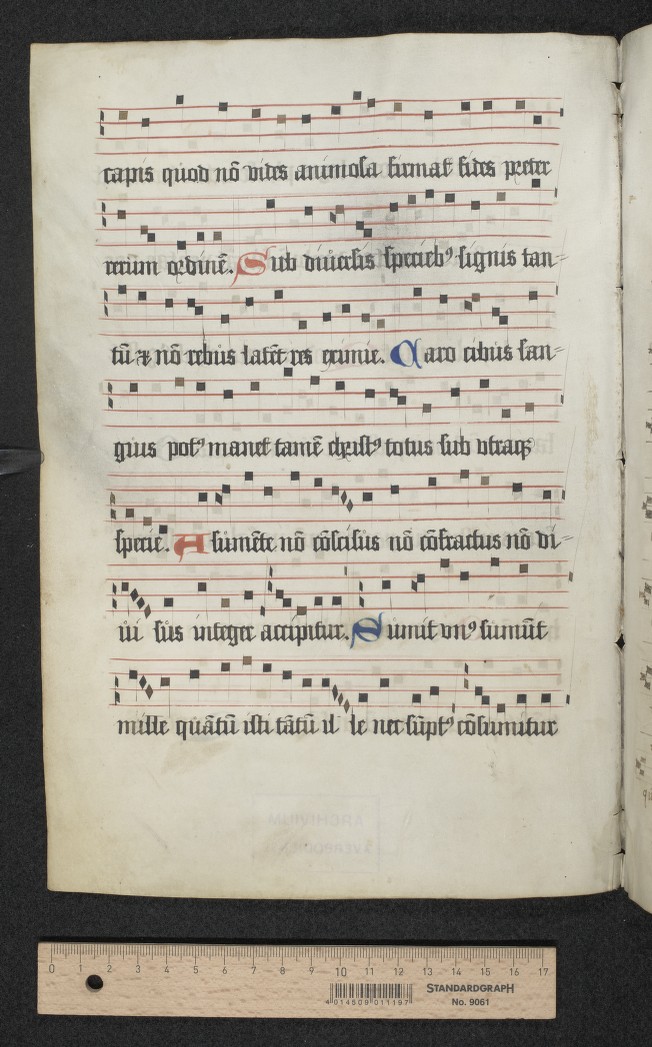 capis quod nō vides animosa firmat fides preter
rerum ordinē. Sub diuersis specieb⁹ signis tan=
tū & nō rebus latēt res eximie. Caro cibus san=
guis pot⁹ manet tamē christ⁹ totus sub vtraqꝫ
specie. A sumēte nō cōscisus nō cōfractus nō di=
ui sus integer accipitur. Sumit vn⁹ sumūt
mille quātū isti tātū il le nec sūpt⁹ cōsumitur
ARCHIVIUM
0 1 2 3 4 5 6 7 8 9 10 11 12 13 14 15 16 17
4 014509 011197
STANDARDGRAPH
No. 9061